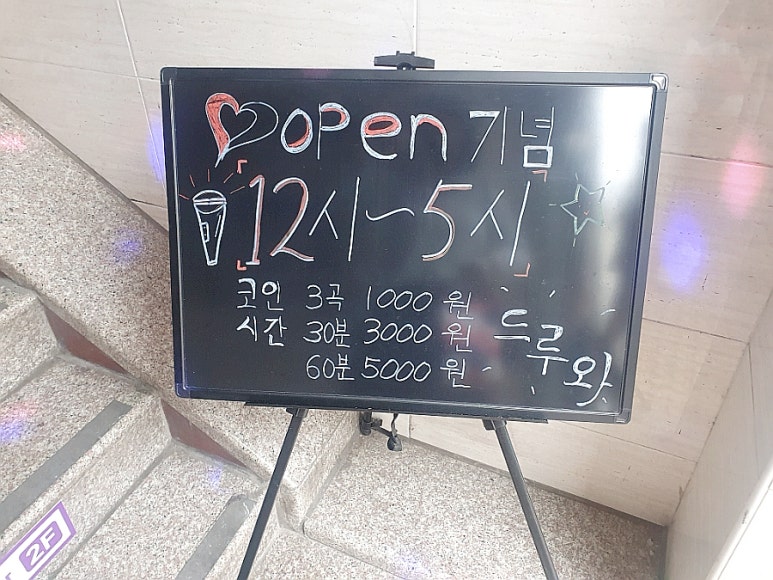 open 기념
12시~5시
코인 3곡 1000원
시간 30분 3000원
60분 5000원
드루와
2F